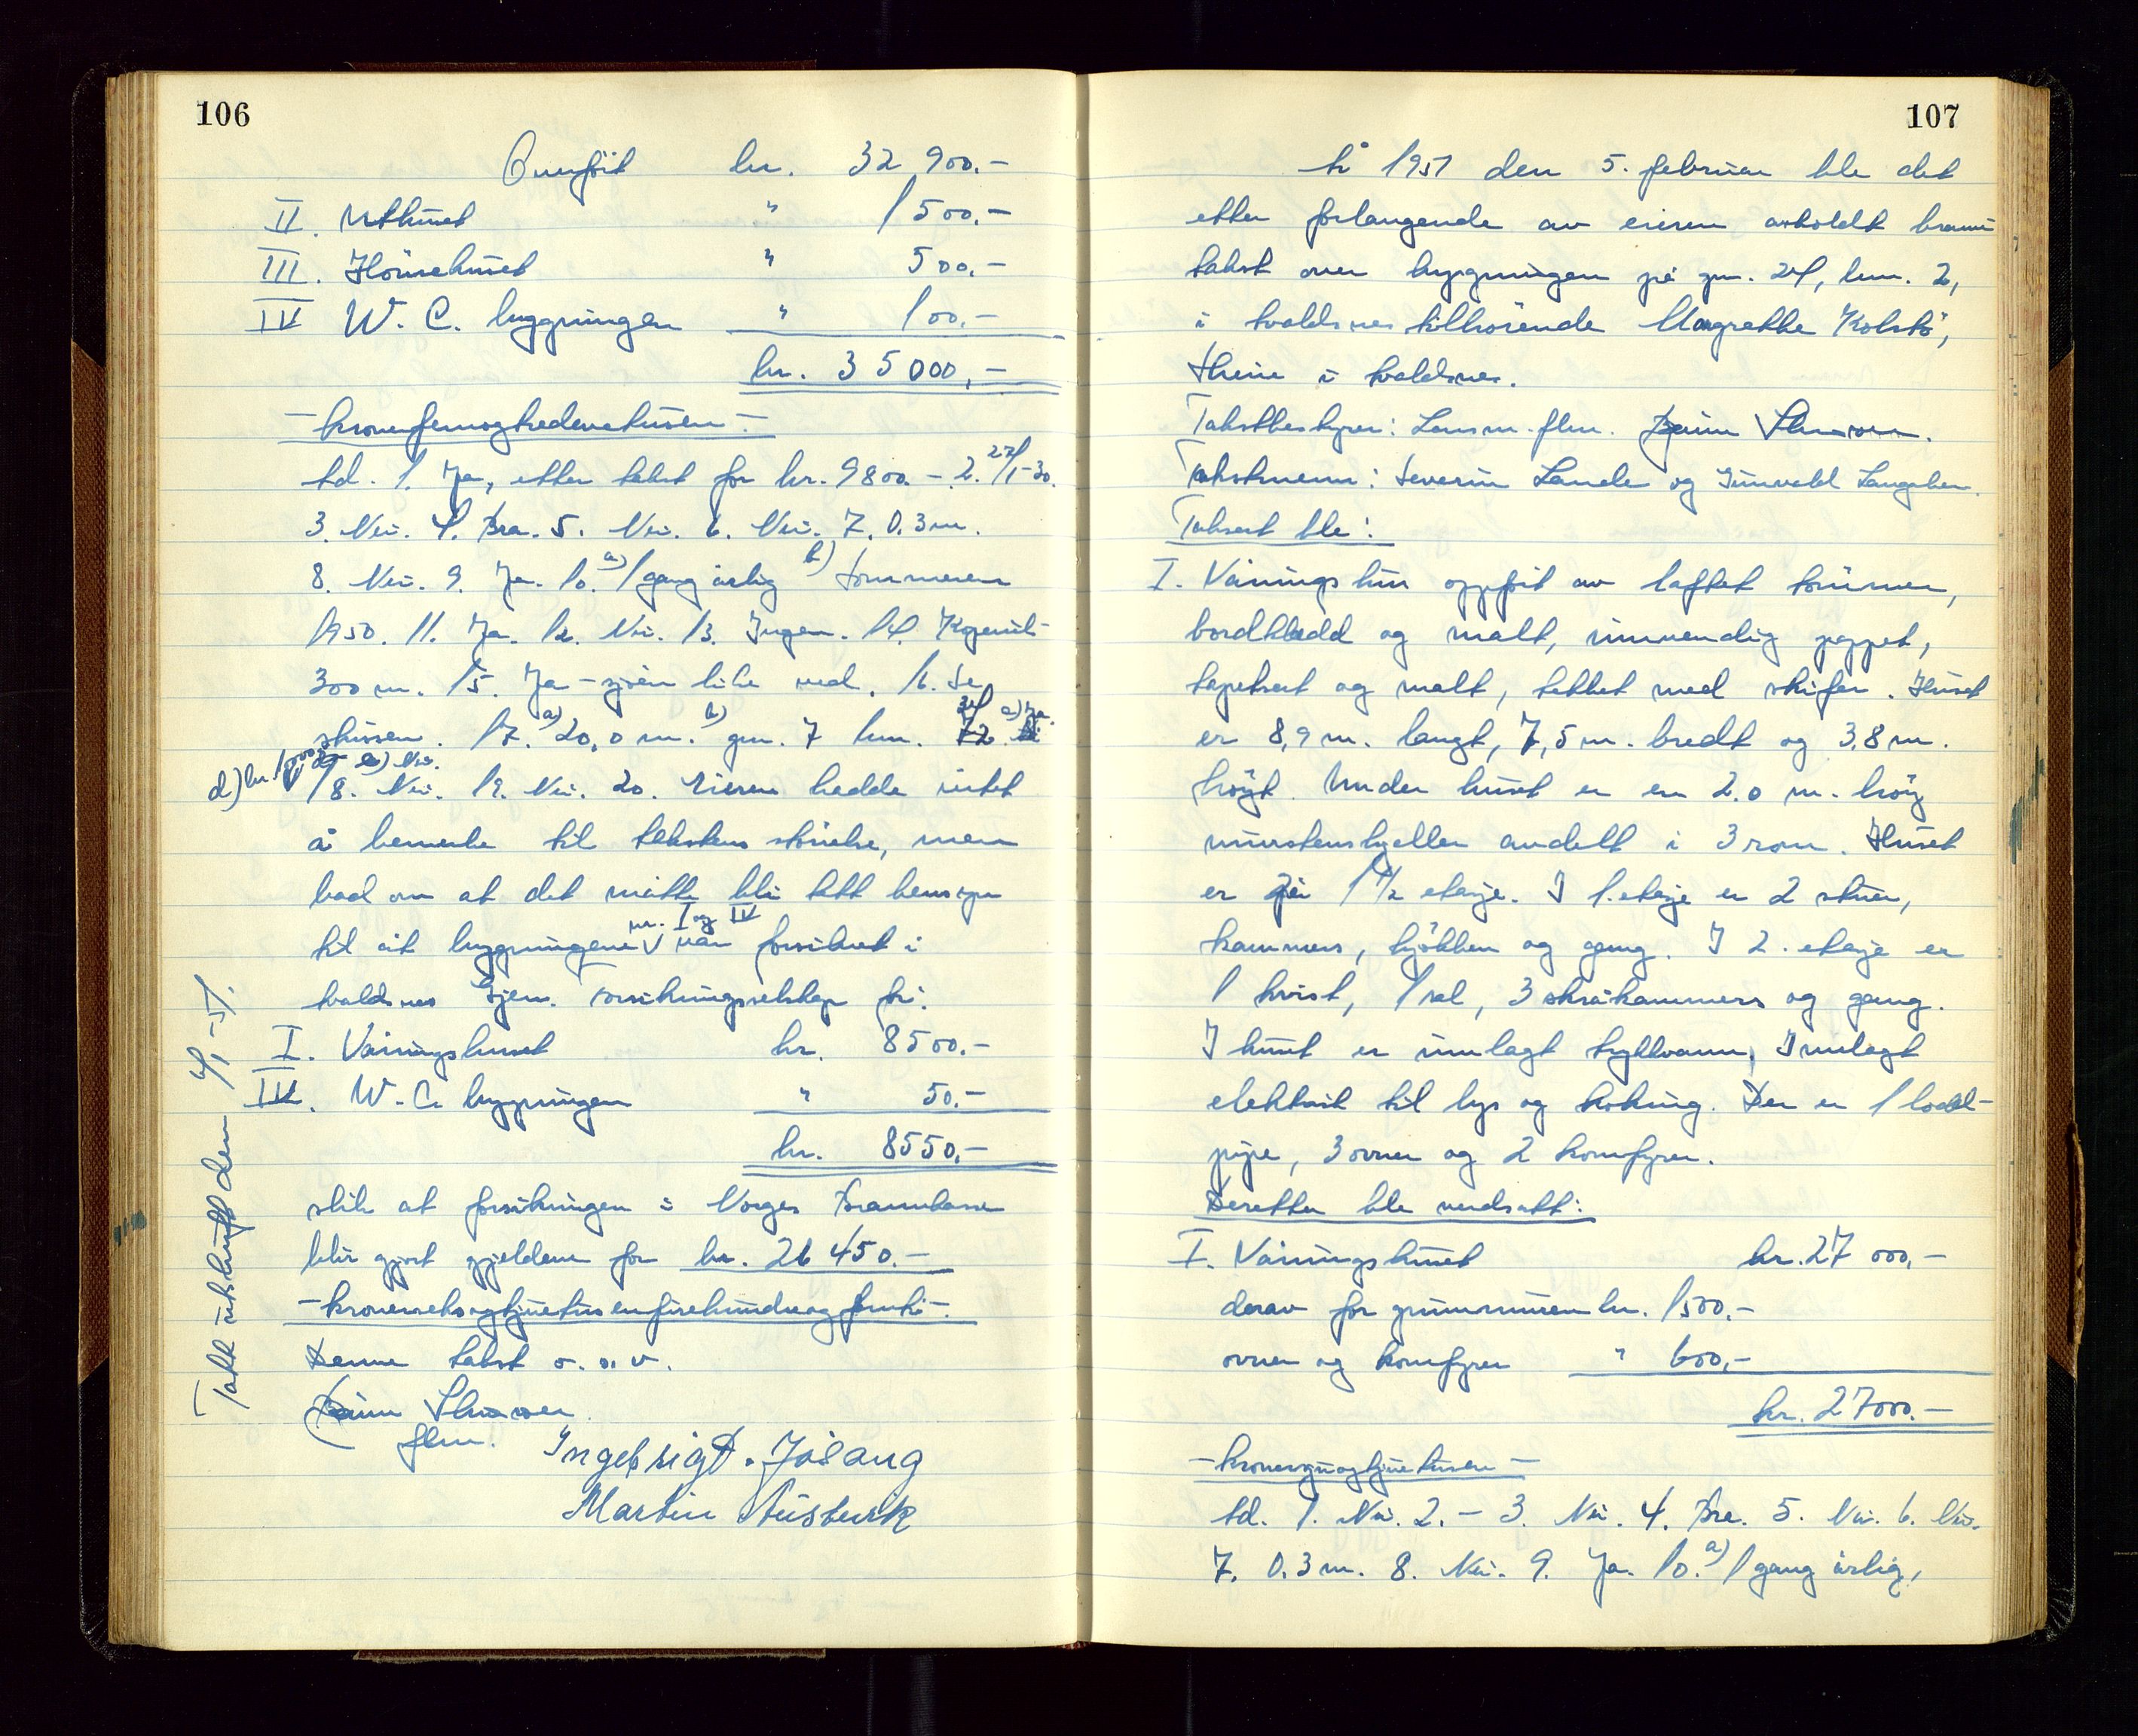 106
Overført kr. 32 900.-
II. Uthuset " 1 500.-
III. Hönsehuset " 500.-
IV W. C. byggningen " 100.-
kr. 35 000,-
- kronerfemogtredevetusen -
td. 1. Ja, etter takst for kr. 9800.- 2. 27/1-30.
3. Nei. 4. Bra. 5. Nei. 6. Nei. 7. 0.3 m.
8. Nei. 9. Ja. 10. a) 1 gang årlig b) Sommeren
1950. 11. Ja. 12. Nei. 13. Ingen. 14. Kopervik
300 m. 15. Ja - sjöen like ved. 16. Se
skissen. 17. a) 20,0 m. b) gnr. 7 bnr. 24 c) Ja.
d) kr. e) Nei.
18. Nei. 19. Nei. 20. Eieren hadde intet
å bemerke til takstens störrelse, men
bad om at det måtte bli tatt hensyn
til at byggningene nr. I og IV var forsikret i
Avaldsnes Gjen. Forsikringsselskap for:
I. Våningshuset kr. 8500.-
IV. W.C. byggningen " 50.-
kr. 8550.-
slik at forsikringen i Norges Brannkasse
blir gjort gjeldene for kr. 26 450.-
- kronersekogtjuetusenfirehundreogfemti -
Denne takst o. s. v.
flm.
Ingebrigt Jösang
Martin Austerik
Takst utskrift den 4/1-51.
107
År 1951 den 5. februar ble det
etter forlangende av eieren avholdt brann
takst over byggningen på gnr. 24, bnr. 2,
i Avaldsnes tilhörende Margrethe Kolstö,
i Avaldsnes.
Takstbestyrer: Lensm. flm.
Takstmenn: Severin Lande og Gunvald Langåker.
Taksert ble:
I. Våningshus oppfört av laftet tömmer,
bordkledd og malt, innvendig pappet,
tapetsert og malt, tekket med skifer. Huset
er 8,9 m. langt, 7,5 m. bredt og 3,8 m.
höyt. Under huset er en 2.0 m. höy
murstenskjeller avdelt i 3 rom. Huset
er på 1 1/2 etasje. I 1. etasje er 2 stuer,
kammers, kjökken og gang. I 2. etasje er
1 kvist, 1 sal, 3 skråkammers og gang.
I huset er innlagt trykkvann, Innlagt
elektrisit til lys og koking. Der er 1 lodd-
pipe, 3 ovner og 2 komfyrer.
Deretter ble verdsatt:
I. Våningshuset kr. 27 000,-
derav for grunnmuren kr. 1500.-
ovner og komfyrer " 600,-
kr. 27000.-
- kronersyvogtjuetusen -
td. 1. Nei. 2. - 3. Nei. 4. Bra. 5. Nei. 6. Nei.
7. 0.3 m. 8. Nei. 9. Ja. 10. a) 1 gang årlig,